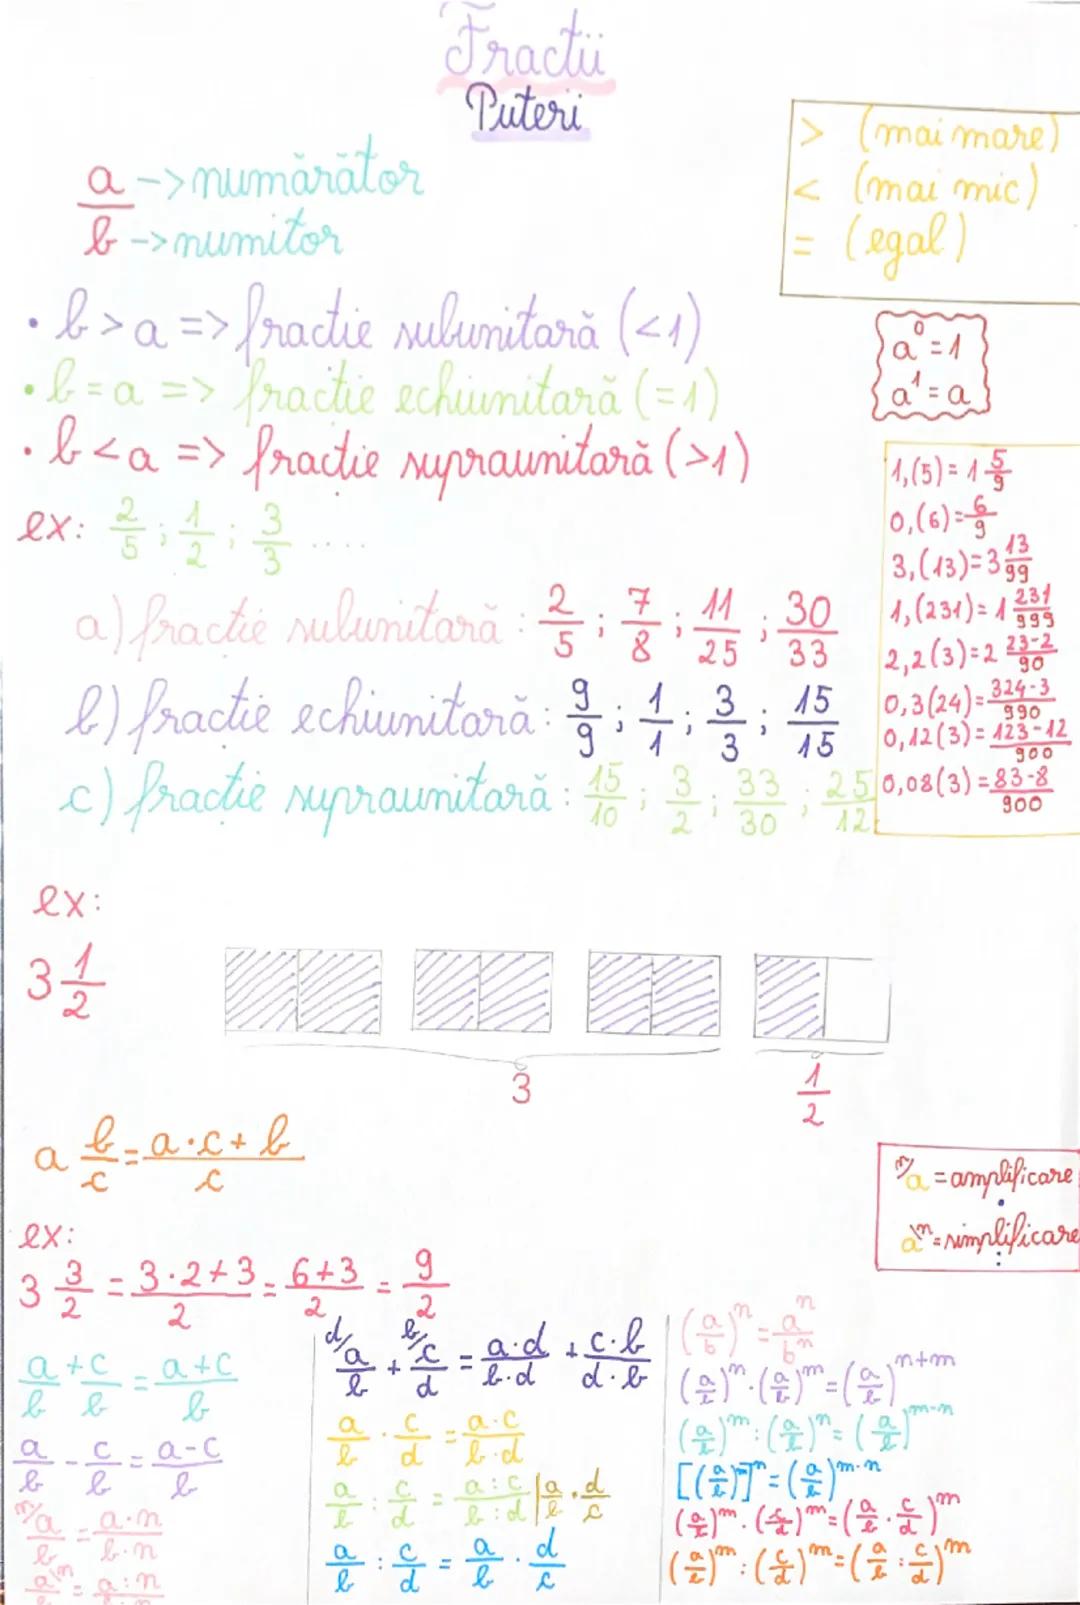 Fractii
Puteri
> (mai mare)
< (mai mic)
= (egal)
a -> numărător
b -> numitor
• b > a => fractie subunitară (<1)
• b = a => fractie echiunitară (=1)
• b < a => fractie supraunitară (>1)
a⁰ = 1
a¹ = a
ex: 2/5 ; 1/2 ; 3/3 ....
a) fractie subunitară : 2/5 ; 7/8 ; 11/25 ; 30/33
b) fractie echiunitară : 9/9 ; 1/1 ; 3/3 ; 15/15
c) fractie supraunitară : 15/10 ; 3/2 ; 33/30 ; 25/12
1,(5) = 1 5/9
0,(6) = 6/9
3,(13) = 3 13/99
1,(231) = 1 231/999
2,2(3) = 2 23-2/90
0,3(24) = 324-3/990
0,12(3) = 123-12/900
0,08(3) = 83-8/900
ex:
3 1/2
3
1/2
a b/c = a·c+b/c
ex:
3 3/2 = 3·2+3/2 = 6+3/2 = 9/2
n/a = amplificare
a\n = simplificare
a/b + c/b = a+c/b
a/b - c/b = a-c/b
n/a/b = a·n/b·n
a\n = a:n
d/a/b + b/c/d = a·d/b·d + c·b/d·b
a/b · c/d = a·c/b·d
a/b : c/d = a:c/b:d | a/b · d/c
a/b : c/d = a/b · d/c
(a/b)ⁿ = aⁿ/bⁿ
(a/b)ⁿ · (a/b)ᵐ = (a/b)ⁿ⁺ᵐ
(a/b)ᵐ : (a/b)ⁿ = (a/b)ᵐ⁻ⁿ
[(a/b)ᵐ]ⁿ = (a/b)ᵐ·ⁿ
(a/b)ᵐ · (c/d)ᵐ = (a/b · c/d)ᵐ
(a/b)ᵐ : (c/d)ᵐ = (a/b : c/d)ᵐ